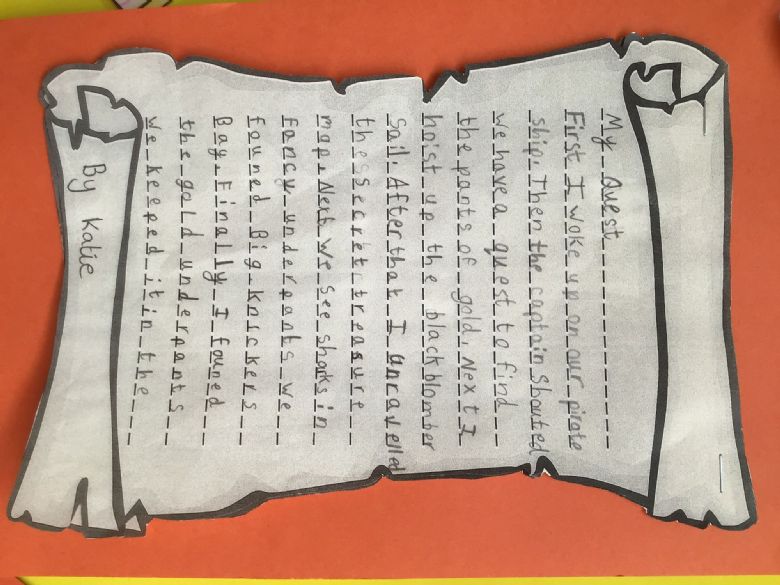 My Quest
First I woke up on our pirate
ship. Then the captain Shouted
we have a quest to find
the pants of gold. Next I
hoist up the black blomber
Sail. After that I unravelled
thessecret treasure
map. Next We see sharks in
fancy underpants we
founed Big knickers
Bay. Finally I founed
the gold underpants
we keeped it in the
By Katie